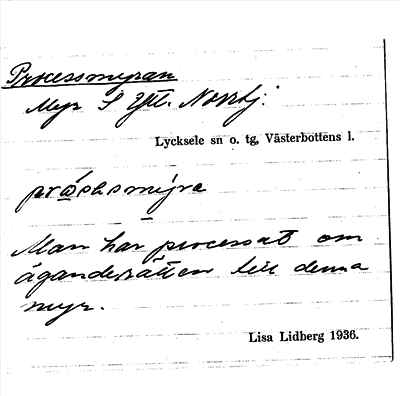 Processmyran
Myr S Ytt. Norrbj.
Lycksele sn o. tg, Västerbottens l.
Man har processat om
äganderätten till denna
myr.
Lisa Lidberg 1936.